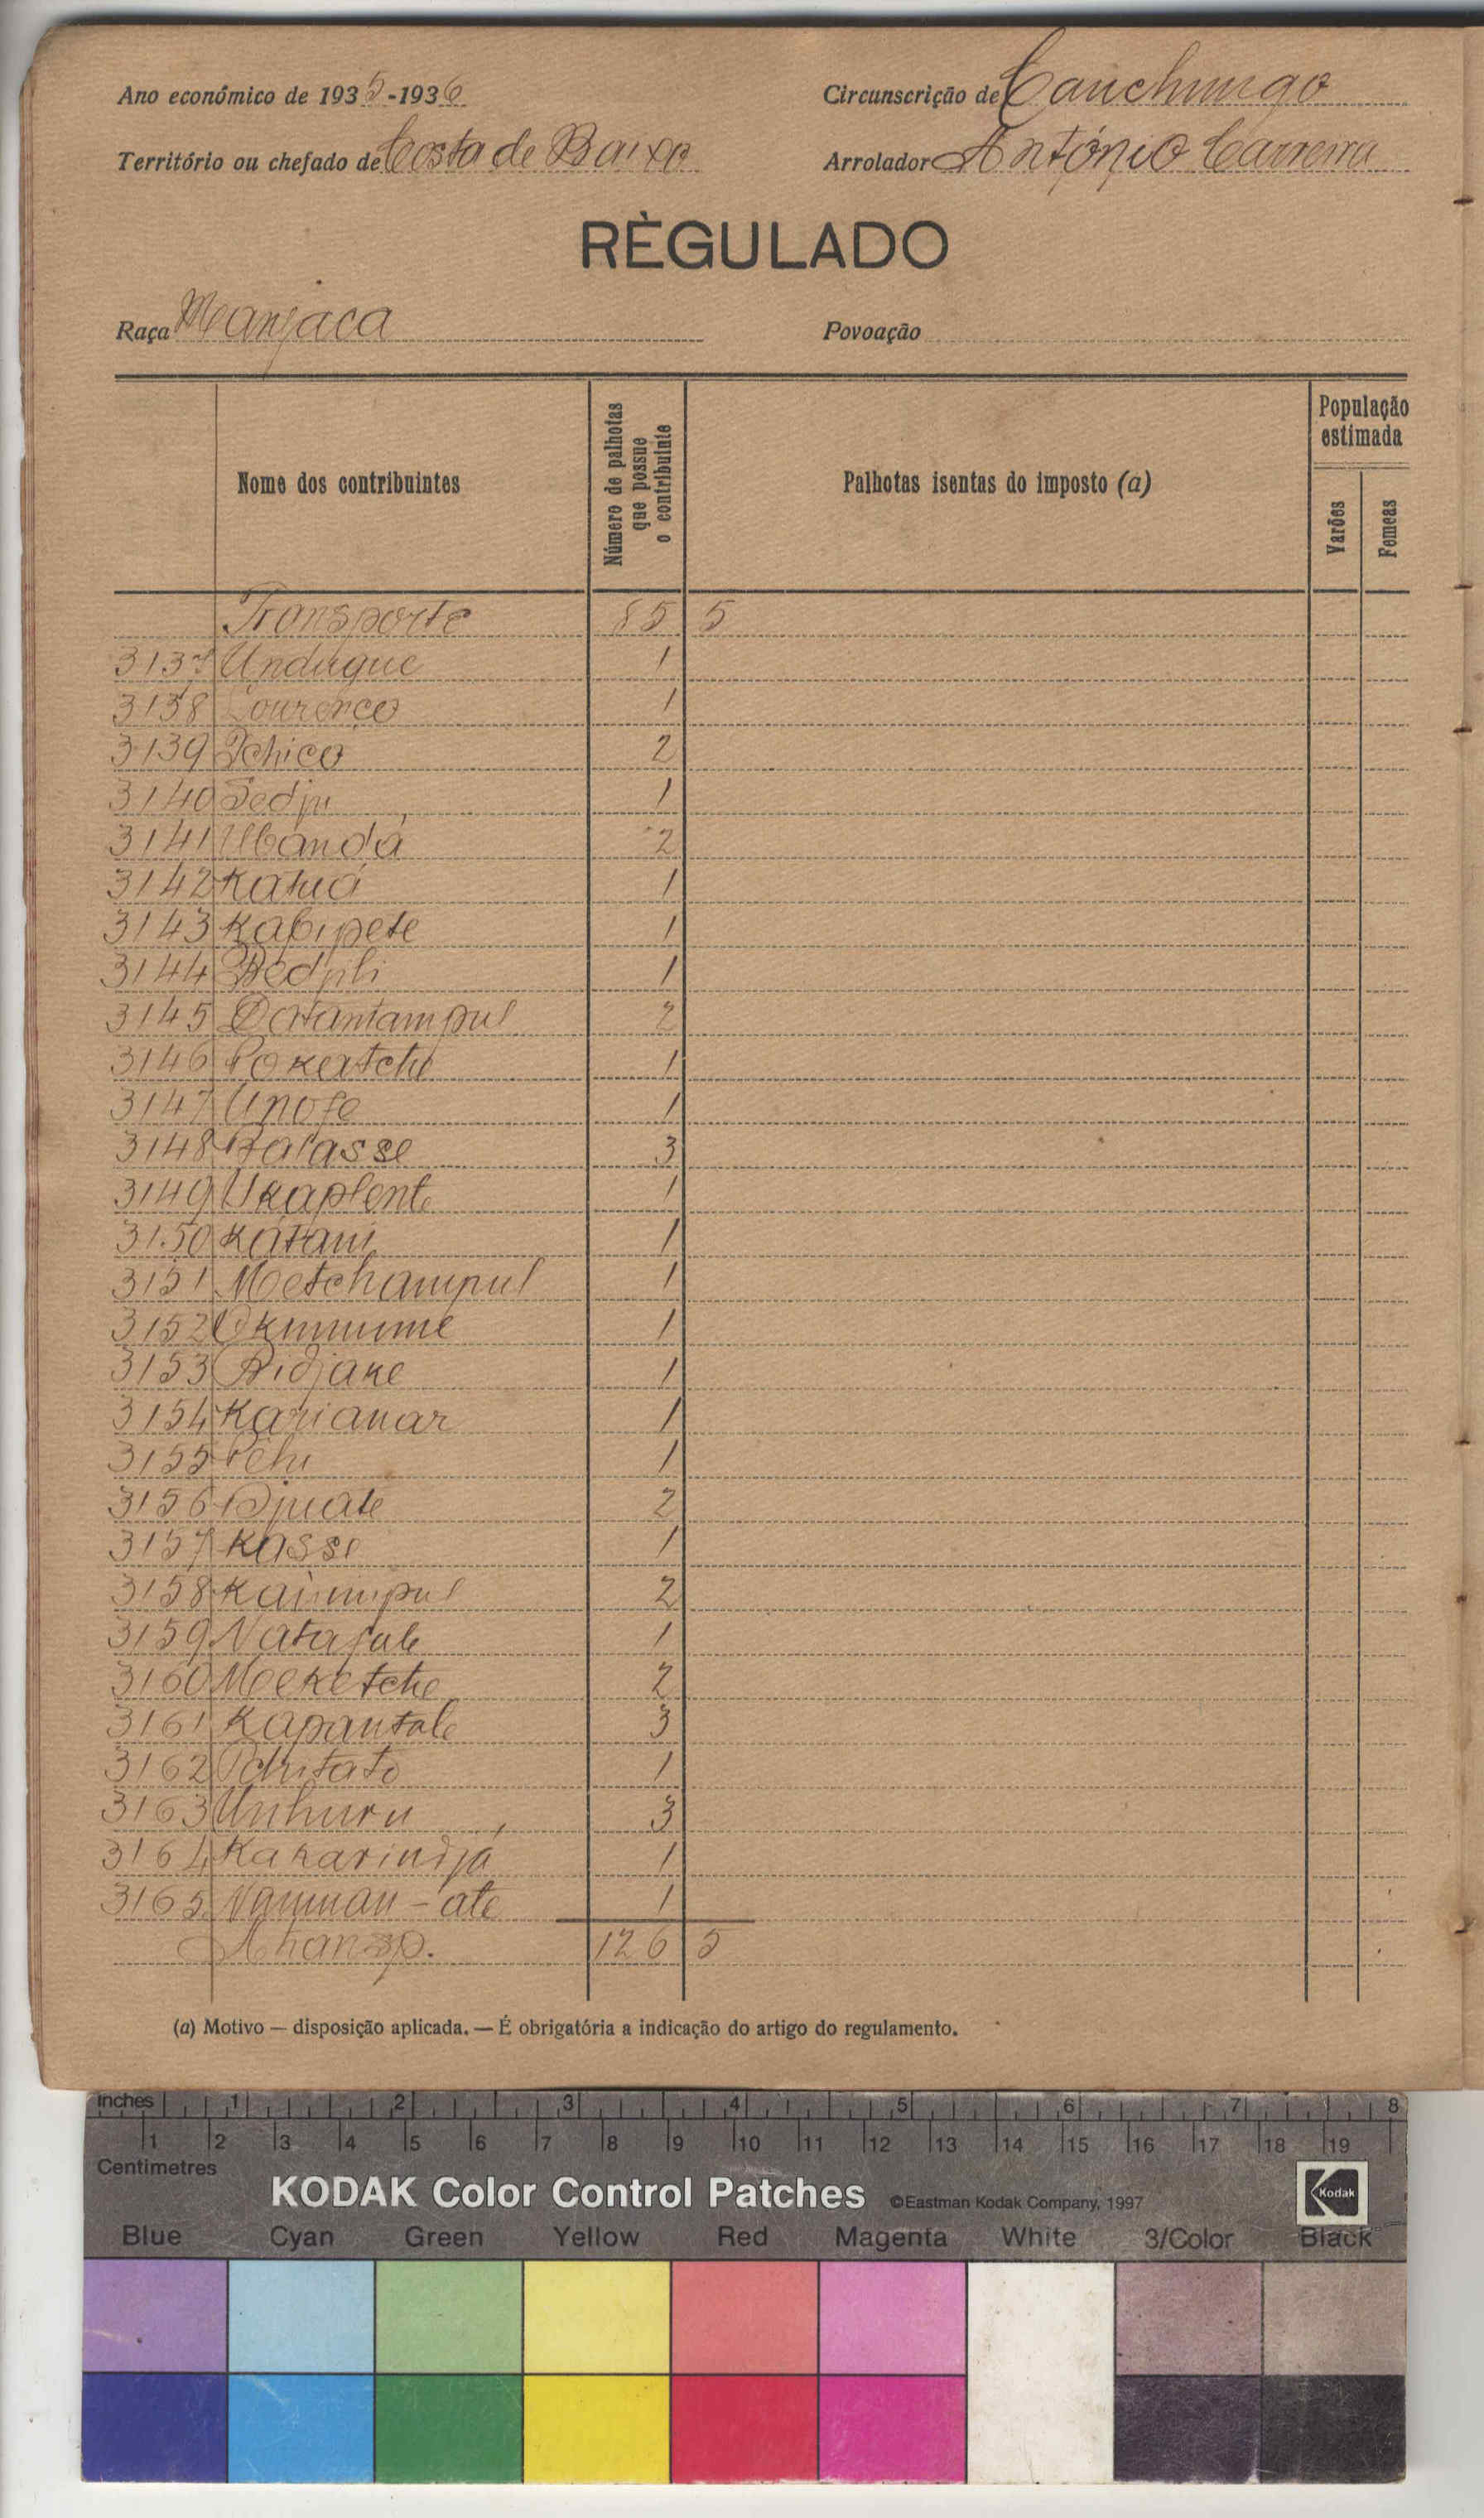 Ano económico de 1935-1936 Circunscrição de Canchungo
Território ou chefado de Costa de Baixo Arrolador António Carreira
RÈGULADO
Raça Manjaca Povoação
Nome dos contribuintes Número de palhotas que possue o contribuinte Palhotas isentas do imposto (a) População estimada Varões Femeas
Transporte 85 5
3137 Undugue 1
3138 Lourenço 1
3139 Tchico 2
3140 Sedju 1
3141 Ubandá 2
3142 Katuá 1
3143 Kabipete 1
3144 1
3145 Datantampul 2
3146 Pokatche 1
3147 Unofe 1
3148 Balasse 3
3149 Ukaplente 1
3150 Kátani 1
3151 Metchampul 1
3152 1
3153 Bidjake 1
3154 Karianar 1
3155 1
3156 Djuate 2
3157 Kasse 1
3158 Kaimpul 2
3159 Natafale 1
3160 Meketche 2
3161 Kapantale 3
3162 1
3163 Unhuru 3
3164 Kakarindjá 1
3165 Namman-ate 1
Transp. 126 5
(a) Motivo — disposição aplicada. — É obrigatória a indicação do artigo do regulamento.
Inches 1 2 3 4 5 6 7 8
1 2 3 4 5 6 7 8 9 10 11 12 13 14 15 16 17 18 19
Centimetres
KODAK Color Control Patches ©Eastman Kodak Company, 1997 Kodak
Blue Cyan Green Yellow Red Magenta White 3/Color Black